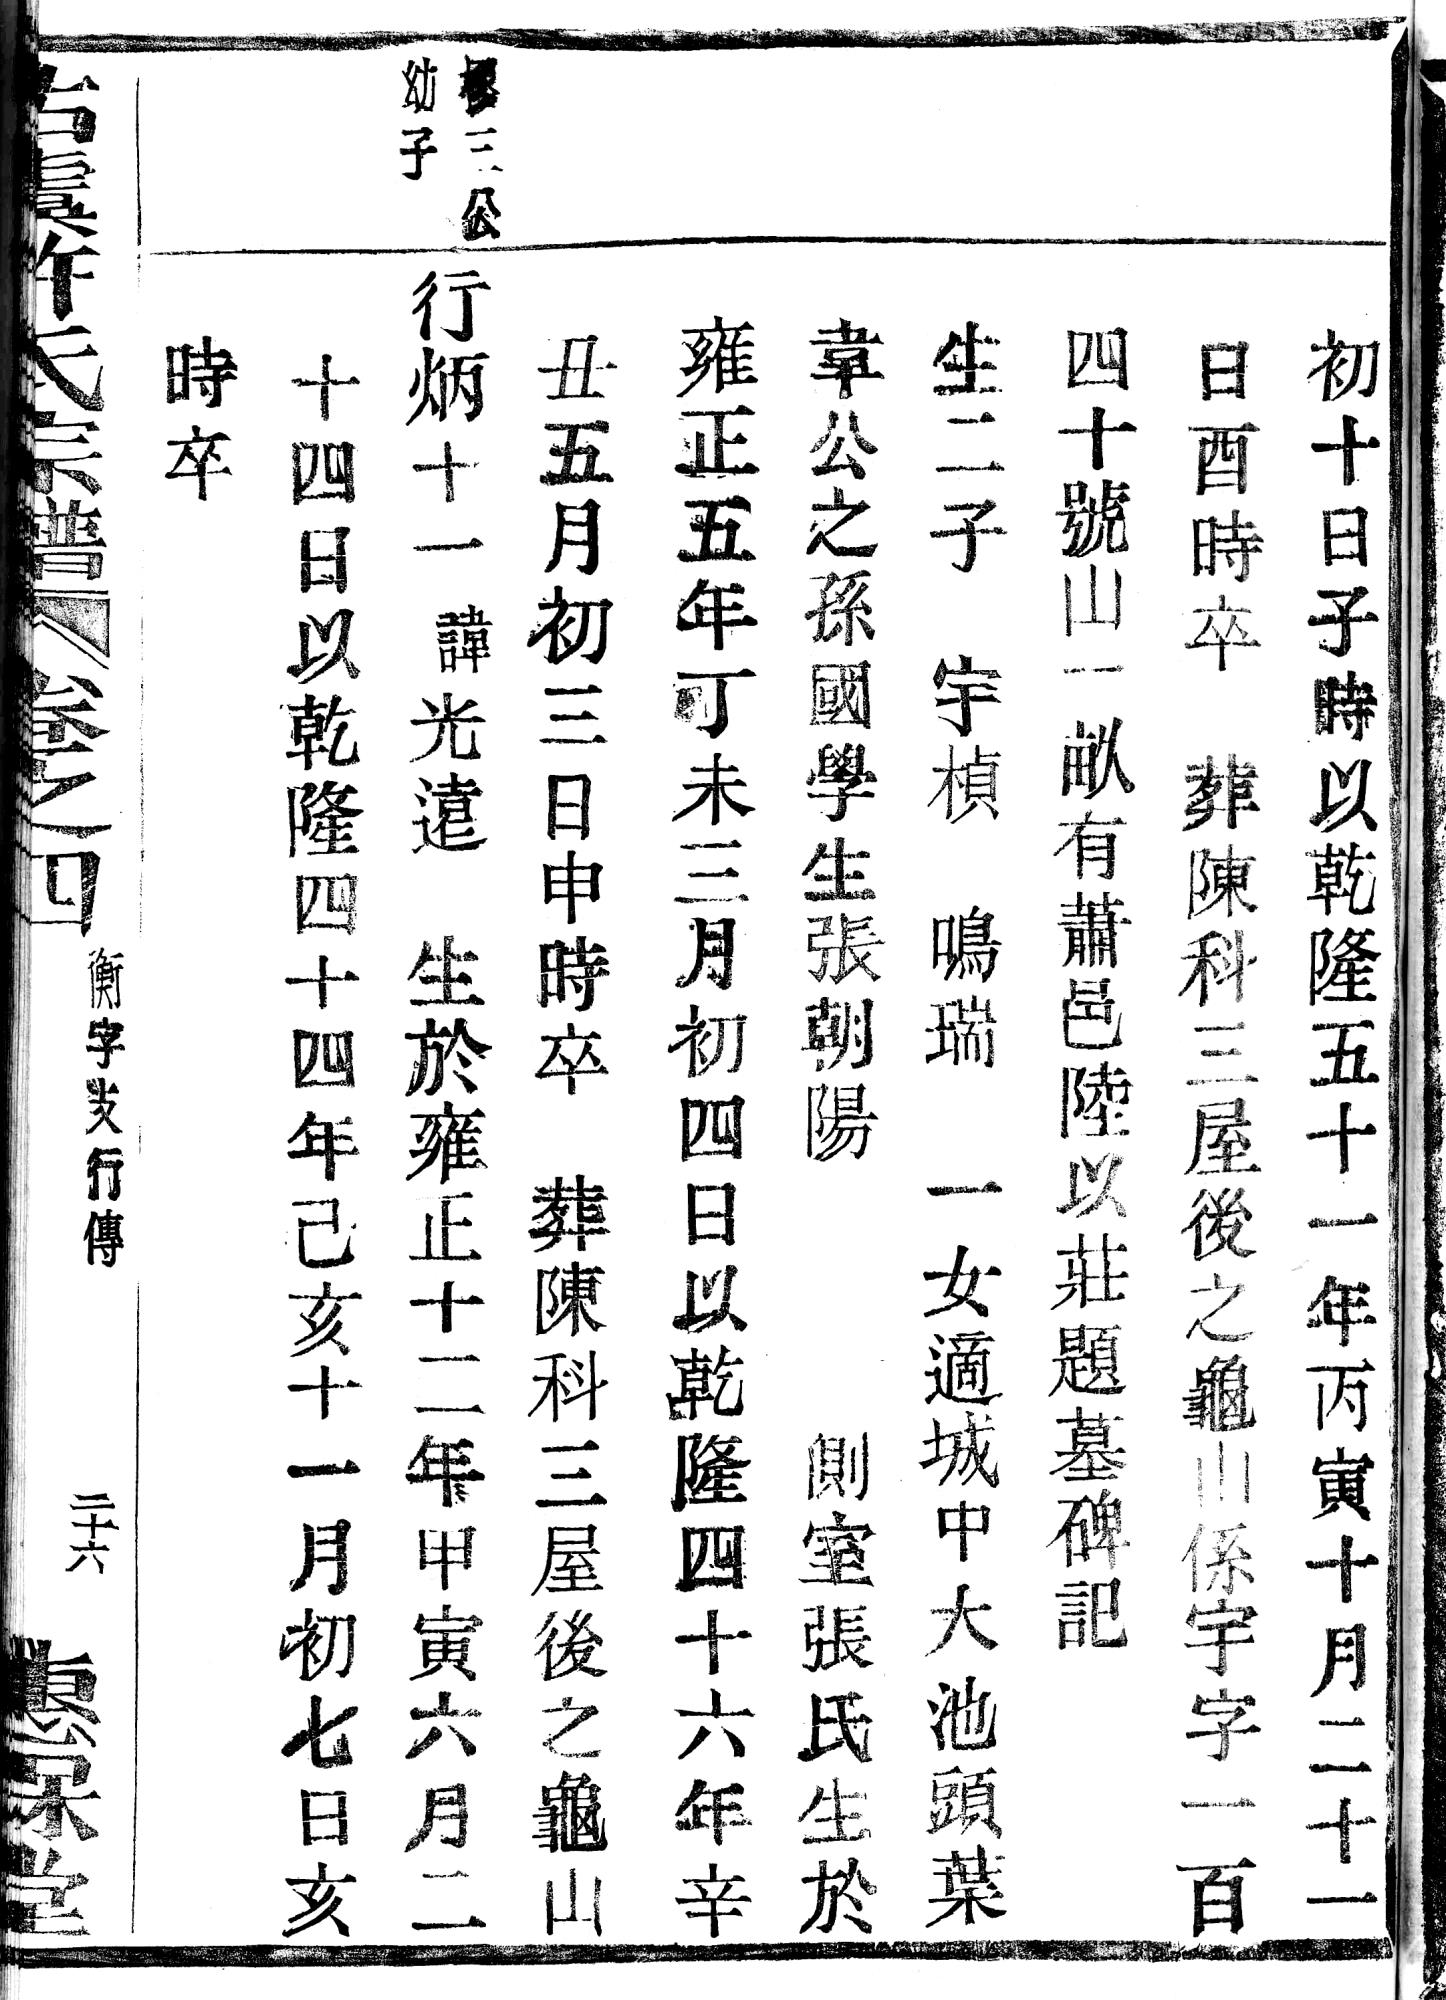 初十日子時以乾隆五十一年丙寅十月二十一
日酉時卒　葬陳科三屋後之龜山係宇字一百
四十號山一畝有蕭邑陸以莊題墓碑記
生二子　宇楨　鳴瑞　一女適城中大池頭葉
韋公之孫國學生張朝陽　側室張氏生於
雍正五年丁未三月初四日以乾隆四十六年辛
丑五月初三日申時卒　葬陳科三屋後之龜山
三公
幼子
行炳十一　諱光遠　生於雍正十二年甲寅六月二
十四日以乾隆四十四年己亥十一月初七日亥
時卒
古虞許氏宗譜　卷之四　衡字支行傳　二十六　惠保堂